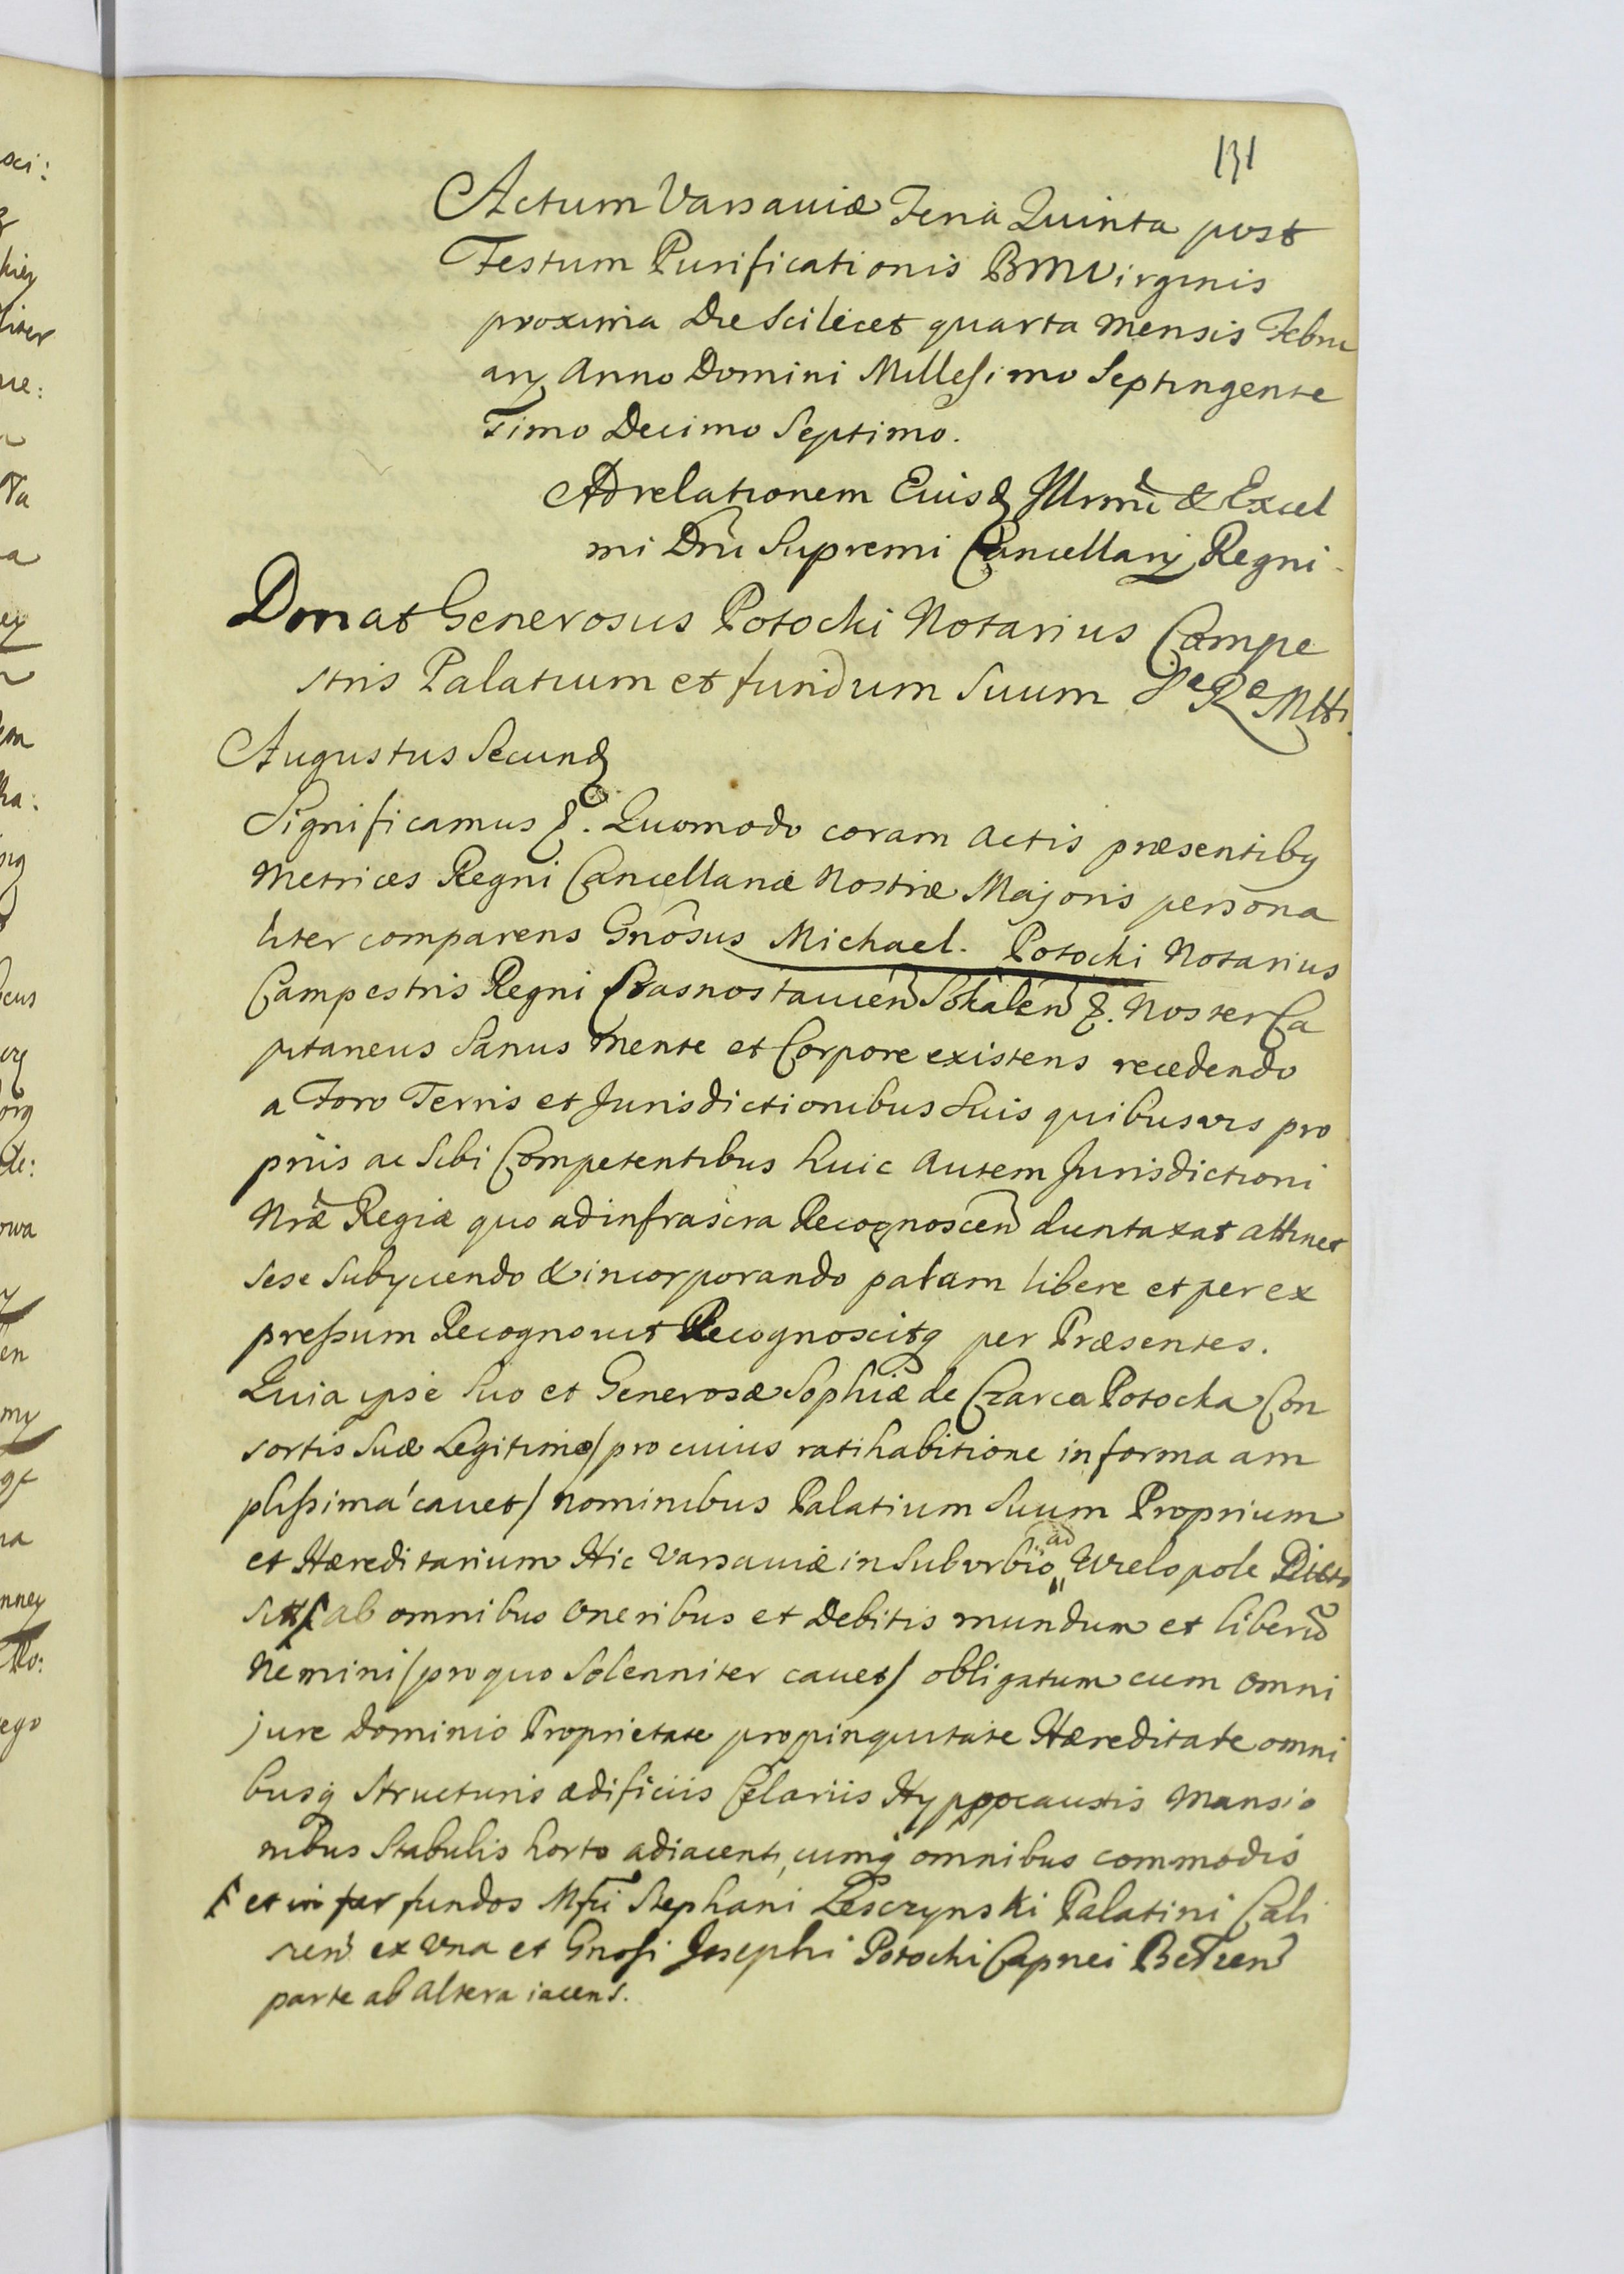 131
Actum Varsaviæ Feria Quinta post
Festum Purificationis BMVirginis
proxima Die Scilicet quarta mensis Febru
arij Anno Domini Millesimo Septingente
simo Decimo Septimo.
Ad relationem Eiusd Illrmi & Excel
mi Dni Supremi Cancellarij Regni
Donat Generosus Potocki Notarius Campe
stris Palatium et fundum Suum SaeRaeMtti.
Augustus Secund
Significamus &. Quomodo coram Actis præsentibq
Metrices Regni Cancellariæ Nostræ Majoris persona
liter comparens Gnosus Michael. Potocki Notarius
Campestris Regni Crasnostavien Sokalen &. Noster Ca
pitaneus Sanus mente et Corpore existens recedendo
a Foro Terris et Jurisdictionibus Suis quibusvis pro
priis ac Sibi Competentibus huic autem Jurisdictioni
Nræ Regiæ quo ad infrascra Recognoscen duntaxat attinet
sese Subijciendo & incorporando palam libere et per ex
pressum Recognovit Recognoscitq per Præsentes.
Quia ipse Suo et Generosæ Sophiæ de Czarca Potocka Con
sortis Suæ Legitimæ/ pro cuius ratihabitione in forma am
plissima cavet/ nominibus Palatium Suum Proprium
et Hæreditarium Hic Varsaviæ in Suburbio ad Wielopole Dicto
ab omnibus Oneribus et Debitis mundum et liberu
Nemini/ pro quo Solenniter cavet/ obligatum cum Omni
jure Dominio Proprietate propinquitate Hæreditate omni
busq Structuris ædificiis Celariis Hyppocaustis Mansio
nibus Stabulis horto adiacenti, cumq omnibus commodis
et inter fundos Mfci Stephani Lesczynski Palatini Cali
sien ex Una et Gnosi Josephi Potocki Capnei Belzen
parte ab altera iacens.